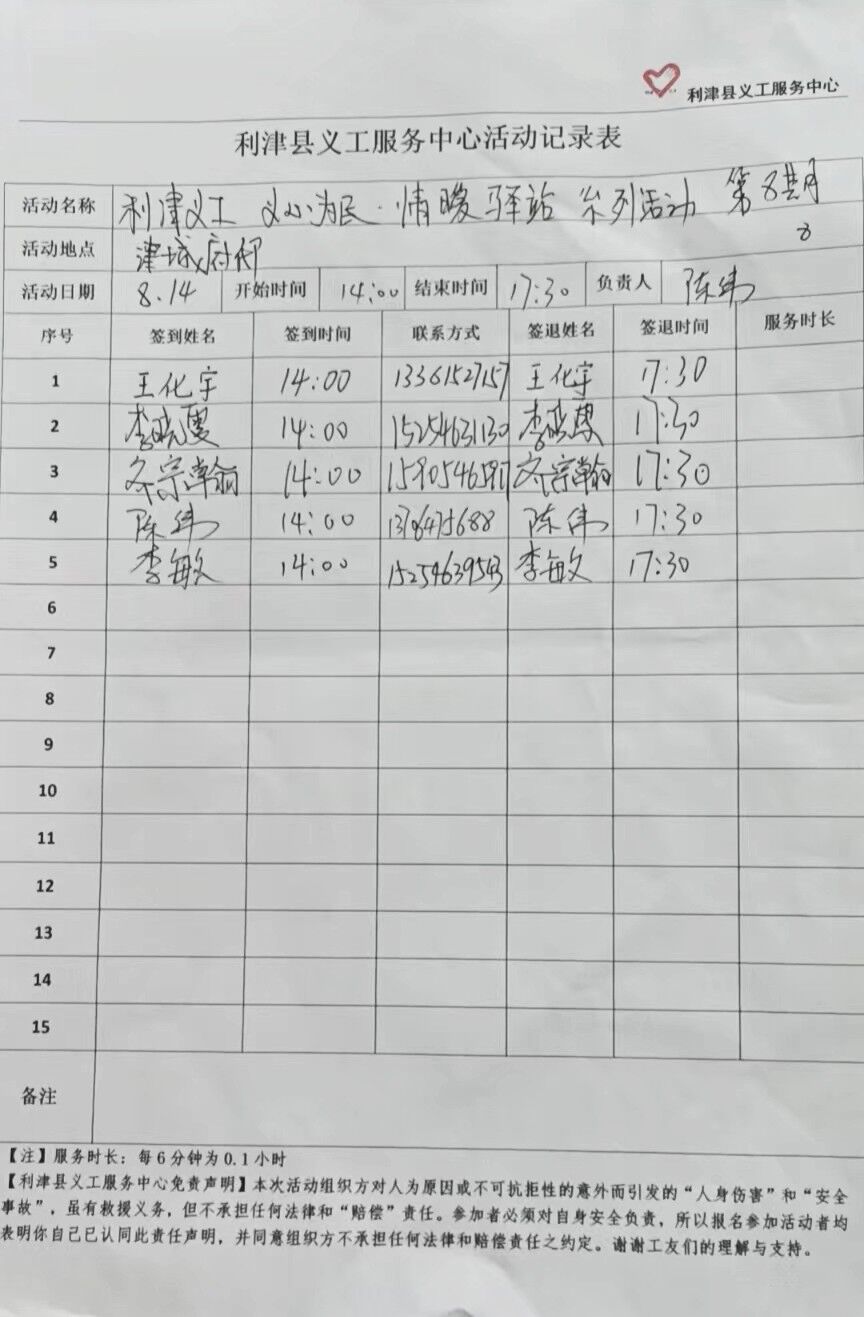 利津县义工服务中心
利津县义工服务中心活动记录表
活动名称 利津义工 义心为民·情暖驿站 系列活动 第8期
8
活动地点 津城府邸
活动日期 8.14 开始时间 14:00 结束时间 17:30 负责人 陈伟
序号 签到姓名 签到时间 联系方式 签退姓名 签退时间 服务时长
1 王化宇 14:00 13361527157 王化宇 17:30
2 李晓 14:00 15254631130 李晓 17:30
3 宗翰 14:00 宗翰 17:30
4 陈伟 14:00 陈伟 17:30
5 李敏 14:00 15254639543 李敏 17:30
6
7
8
9
10
11
12
13
14
15
备注
【注】服务时长：每6分钟为0.1小时
【利津县义工服务中心免责声明】本次活动组织方对人为原因或不可抗拒性的意外而引发的“人身伤害”和“安全
事故”，虽有救援义务，但不承担任何法律和“赔偿”责任。参加者必须对自身安全负责，所以报名参加活动者均
表明你自己已认同此责任声明，并同意组织方不承担任何法律和赔偿责任之约定。谢谢工友们的理解与支持。